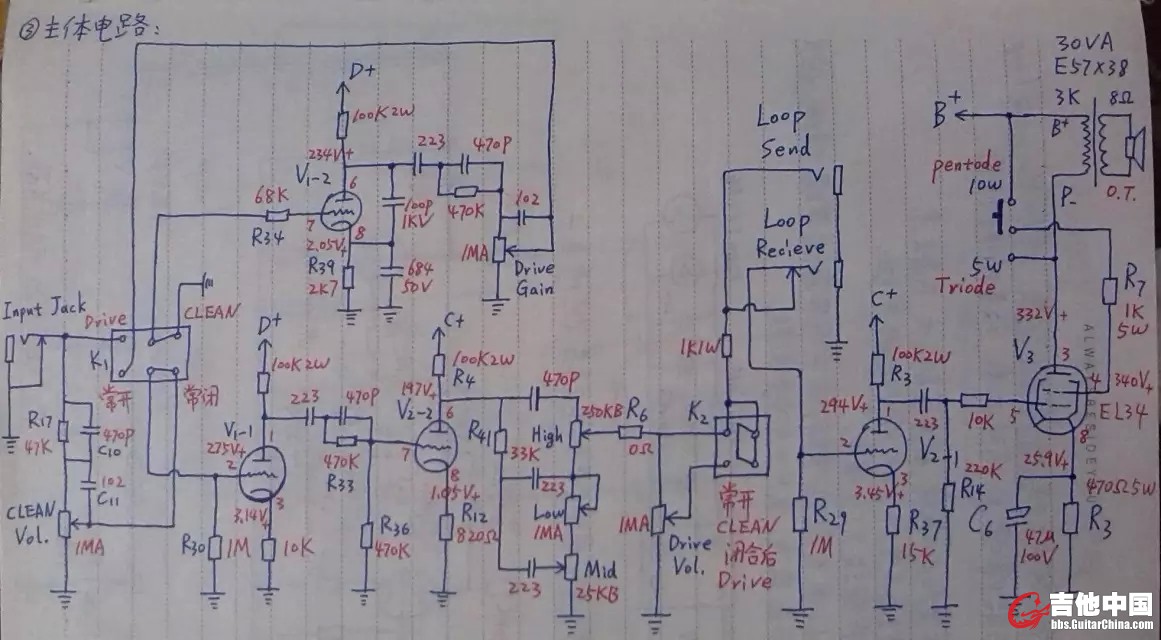 ③主体电路:
30VA
E57X38
3K
8Ω
B+
B+
P-
O.T.
pentode
10W
5W
Triode
D+
100K2W
234V+
V1-2
6
7
8
223
470P
470K
100P
1KV
102
1MA
Drive
Gain
68K
R34
2.05V+
R39
2K7
684
50V
Loop
Send
Loop
Recieve
Input Jack
Drive
CLEAN
K1
常开
常闭
R17
47K
470P
C10
102
C11
CLEAN
Vol.
1MA
D+
100K2W
V1-1
275V+
1
2
3
3.14V+
R30
1M
10K
223
470P
470K
R33
R36
470K
C+
100K2W
R4
197V+
V2-2
6
7
8
1.05V+
R12
820Ω
R41
33K
470P
250KB
High
223
Low
1MA
223
Mid
25KB
R6
0Ω
1K1W
K2
常开
CLEAN
闭合后
Drive
1MA
Drive
Vol.
R29
1M
C+
100K2W
R3
294V+
1
2
3
3.45V+
R37
15K
223
V2-1
10K
220K
R14
332V+
V3
3
4
5
8
340V+
EL34
R7
1K
5W
25.9V+
C6
47M
100V
470Ω5W
R3
吉他中国
bbs.GuitarChina.com